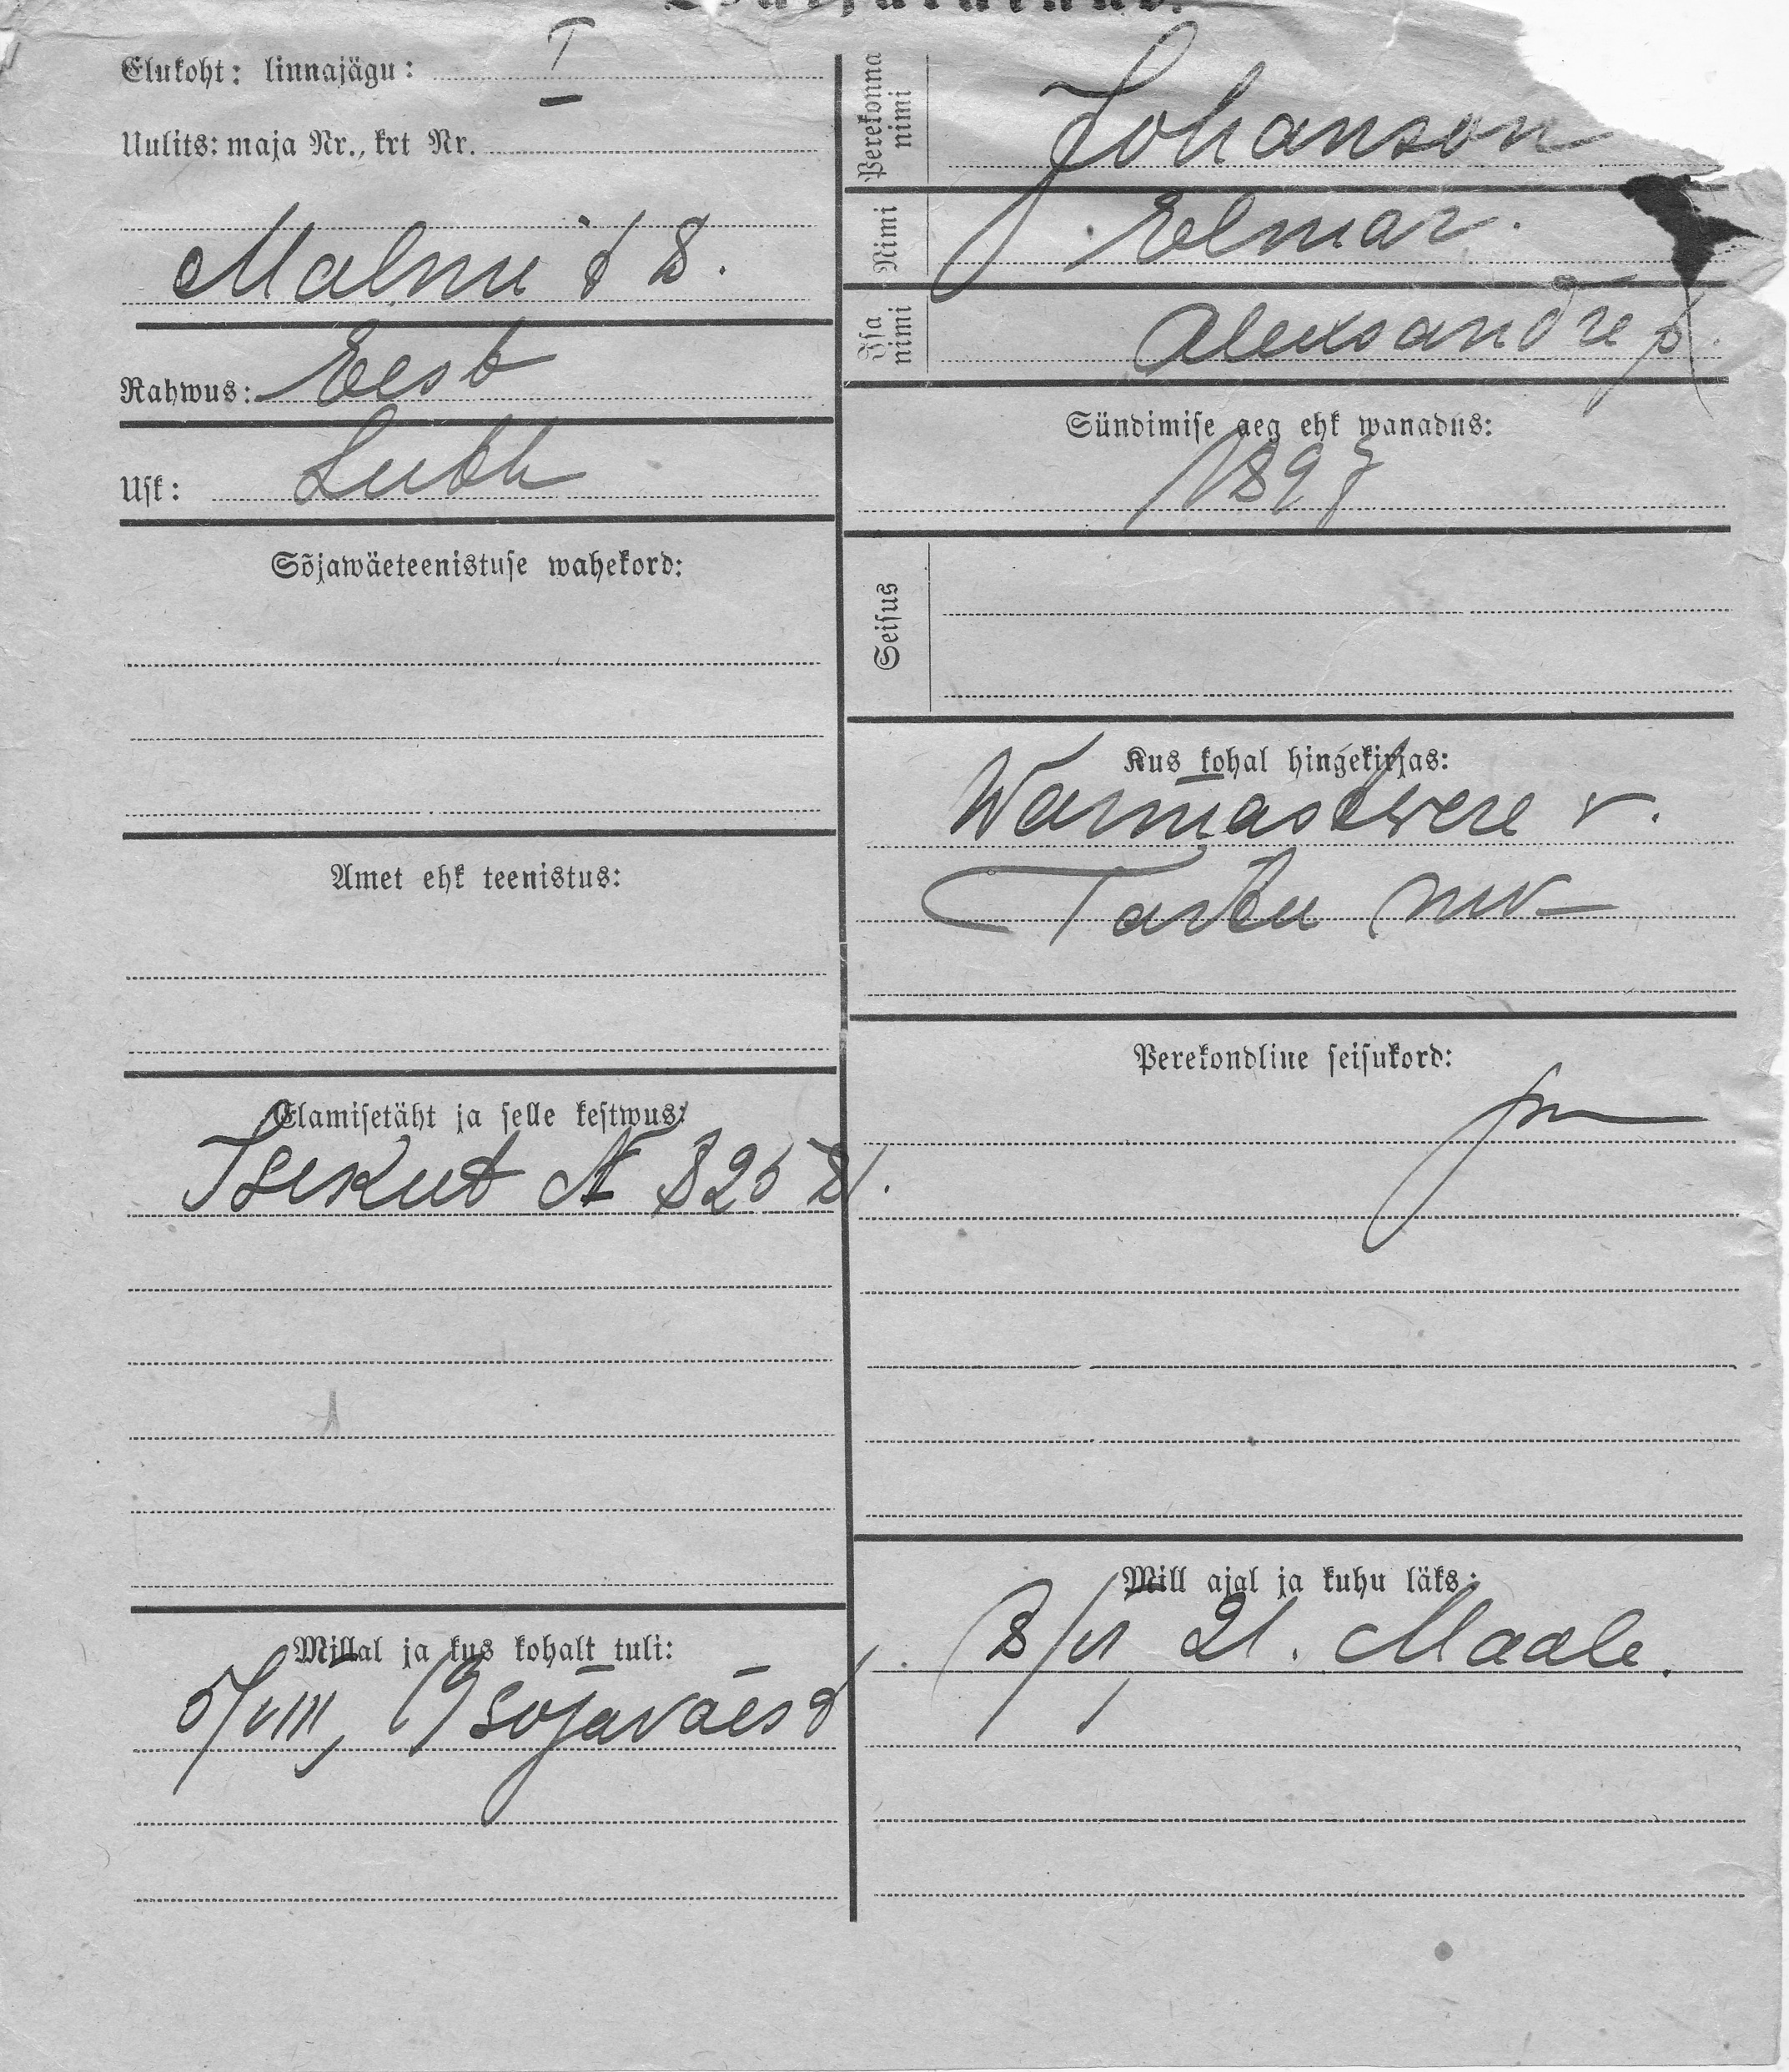 Elukoht: linnajägu: I
Uulits: maja Nr., krt Nr.
Malmi t 8.
Rahwus: Eest
Usk: Luth
Sõjawäeteenistuse wahekord:
Amet ehk teenistus:
Elamisetäht ja selle kestwus:
N 825
Millal ja kus kohalt tuli:
5/VIII, 19 sõjaväest
Perekonna nimi Johanson
Nimi Elmar.
Isa nimi Aleksandre p.
Sündimise aeg ehk wanadus:
1897
Seisus
Kus kohal hingekirjas:
Warmastwere v.
Tartu mk
Perekondline seisukord:
Mill ajal ja kuhu läks:
8/VI 21. Maale.